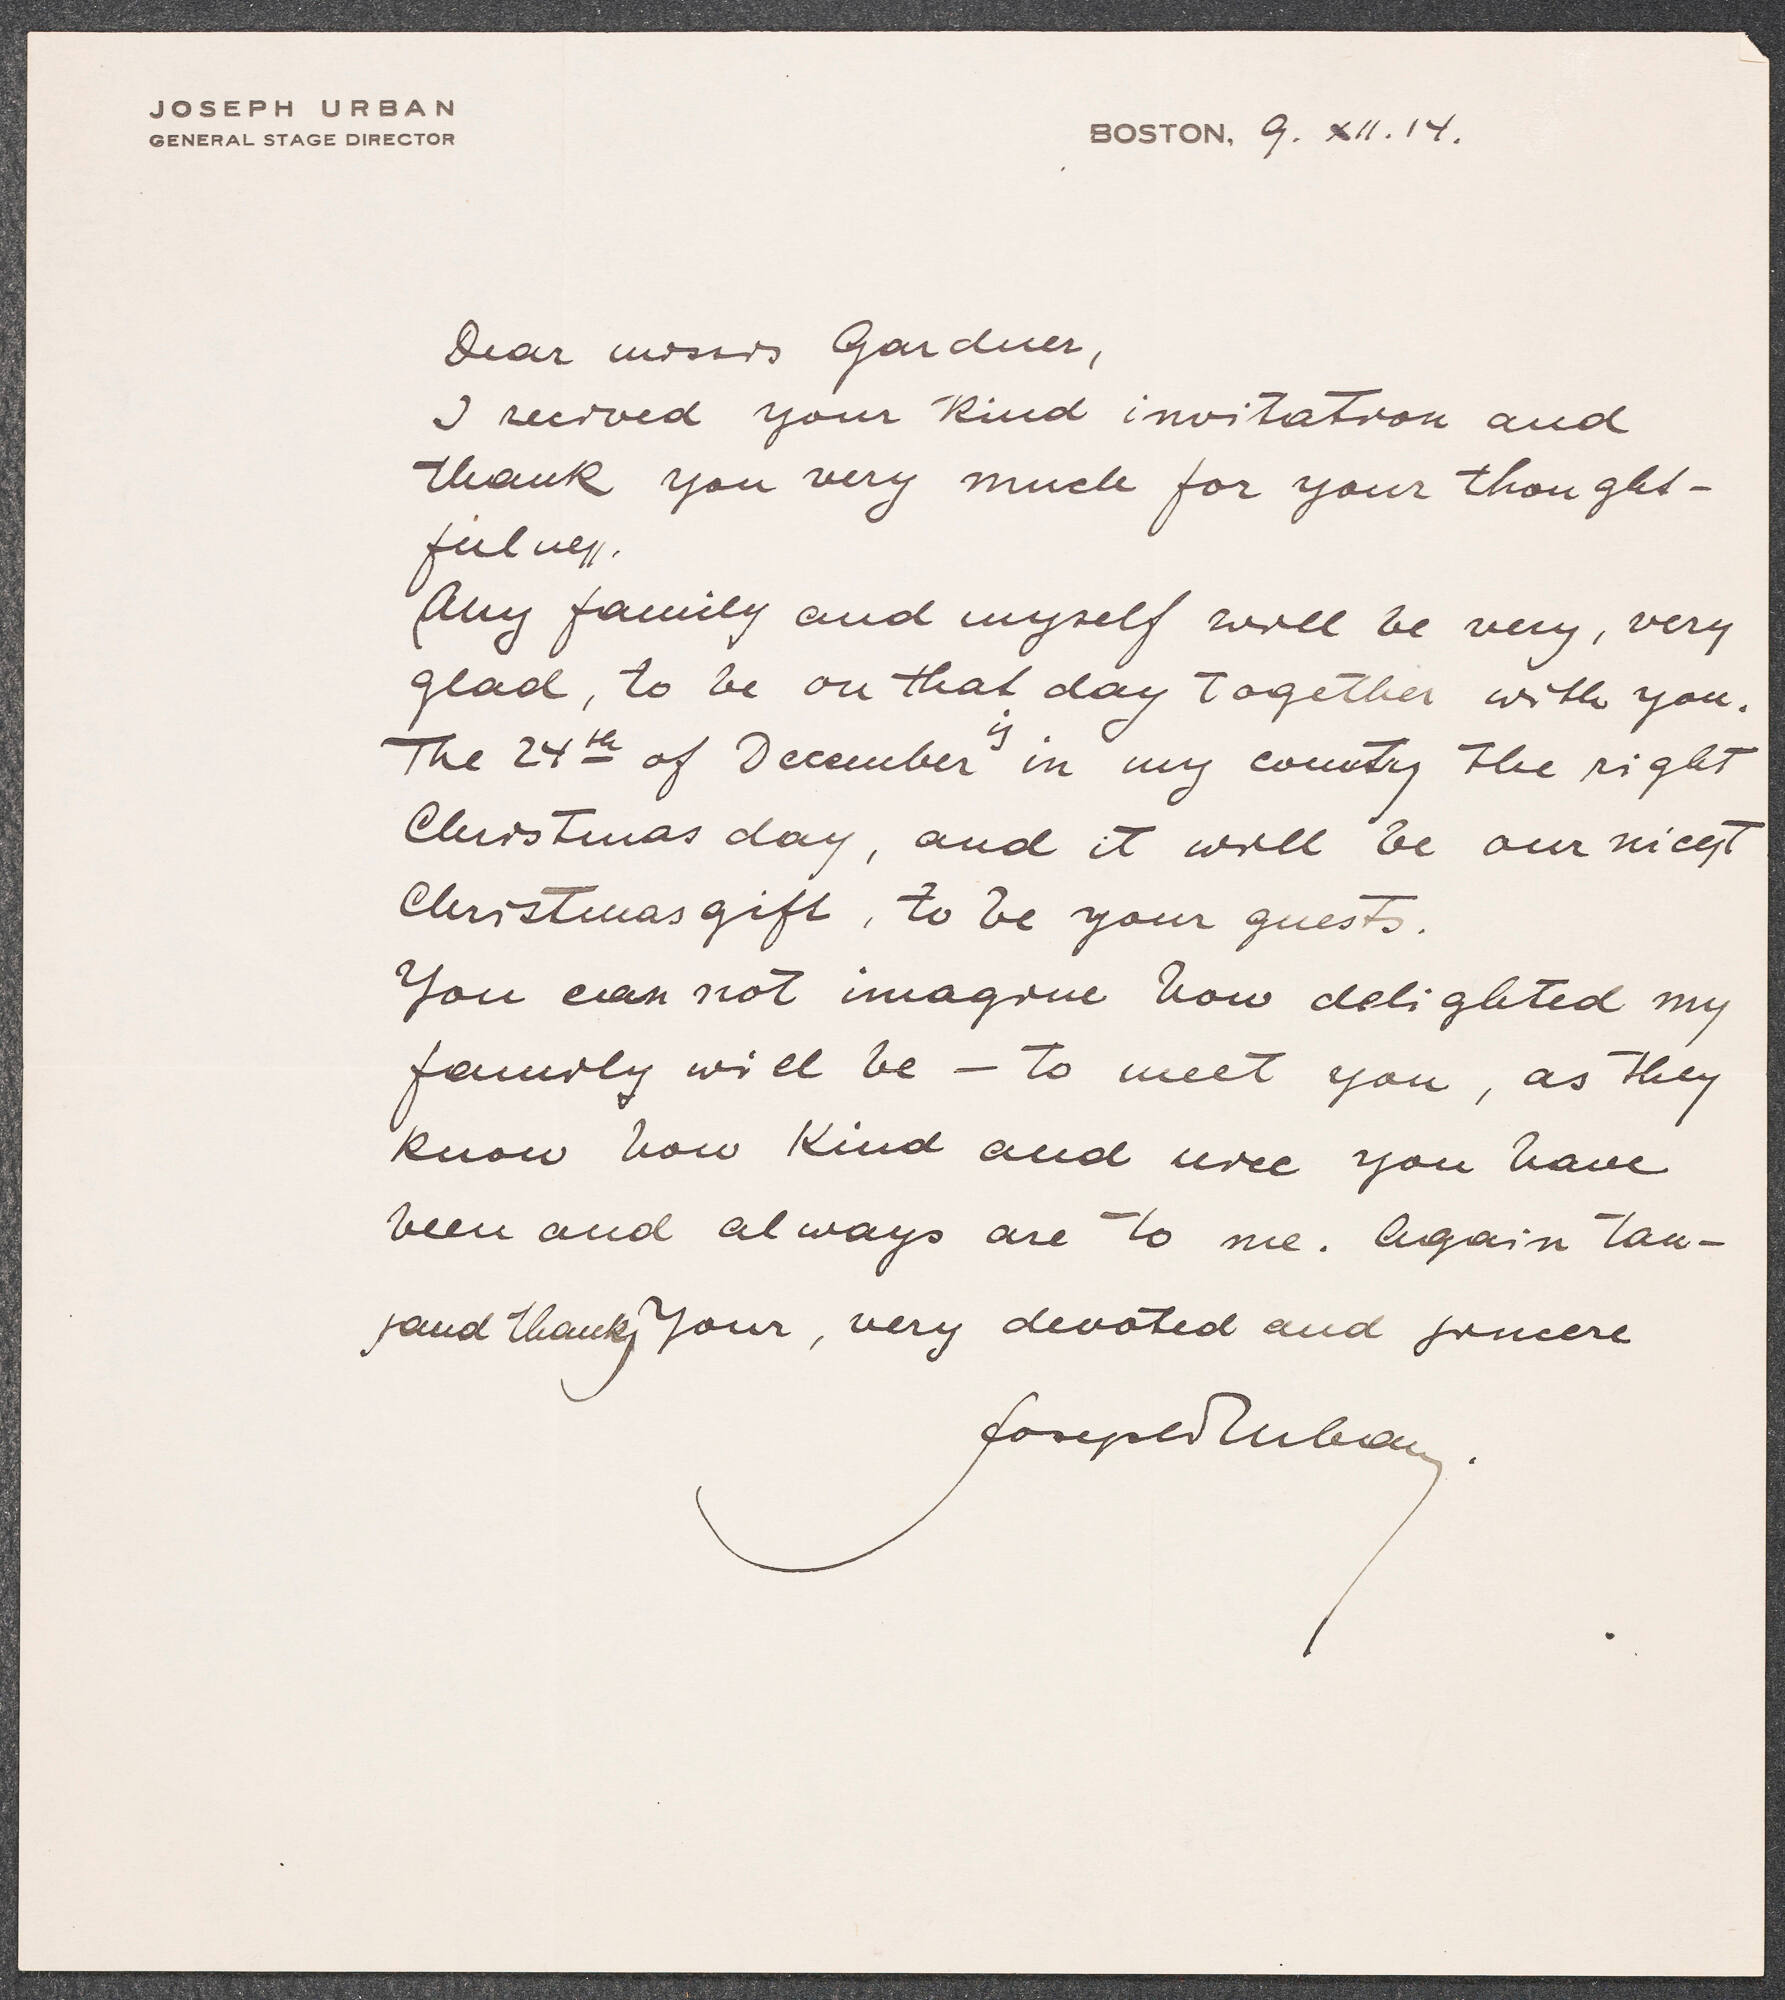 JOSEPH URBAN
GENERAL STAGE DIRECTOR
BOSTON, 9. XII. 14.
Dear missis Gardner,
I recived your kind invitation and
thank you very much for your thought-
fulness.
My family and myself will be very, very
glad, to be on that day together with you.
The 24th of December is in my county the right
Christmas day, and it will be our nicest
Christmasgift, to be your guests.
You can not imagine how delighted my
family will be – to meet you, as they
know how kind and nice you have
been and always are to me. Again tau-
sand thanks Your, very devoted and sincere
Joseph Urban.